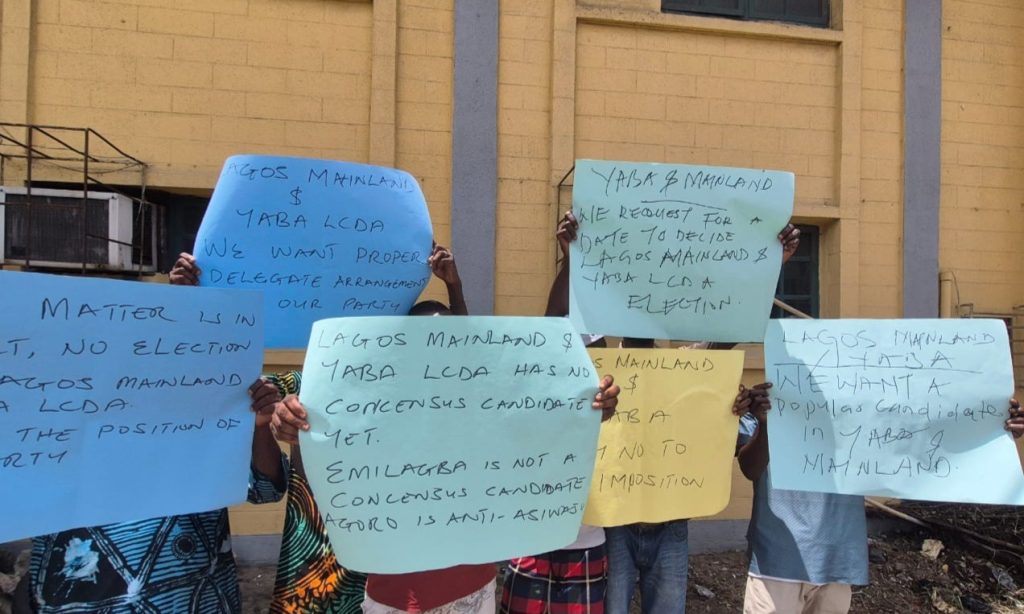 AGOS MAINLAND
$
YABA LCDA
WE WANT PROPER
DELEGATE ARRANGEMENT
OUR PARTY
YABA $ MAINLAND
WE REQUEST FOR A
DATE TO DECIDE
LAGOS MAINLAND $
YABA LCDA
ELECTION.
MATTER IS IN
T, NO ELECTION
AGOS MAINLAND
A LCDA.
THE POSITION OF
RTY
LAGOS MAINLAND $
YABA LCDA HAS NO
CONCENSUS CANDIDATE
YET.
EMILAGBA IS NOT A
CONCENSUS CANDIDATE
AGORO IS ANTI-ASIWAJU
MAINLAND
$
ABA
NO TO
IMPOSITION
LAGOS MAINLAND
/YABA
WE WANT A
Popular candidate
in YABA $
MAINLAND.